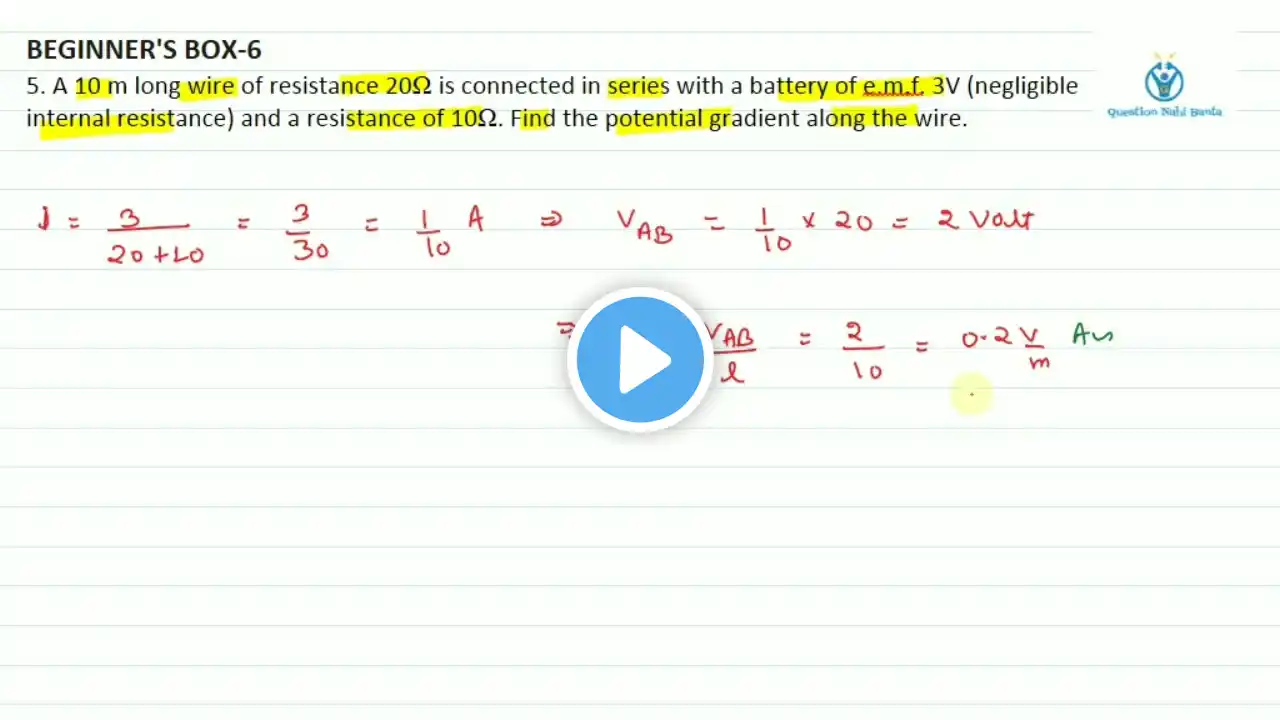 BEGINNER'S BOX-6
5. A 10 m long wire of resistance 20Ω is connected in series with a battery of e.m.f. 3V (negligible
internal resistance) and a resistance of 10Ω. Find the potential gradient along the wire.
Question Nahi Banta
I = 3/(20+10) = 3/30 = 1/10 A ⇒ V_AB = 1/10 × 20 = 2 Volt
⇒ V_AB/l = 2/10 = 0.2 V/m Ans